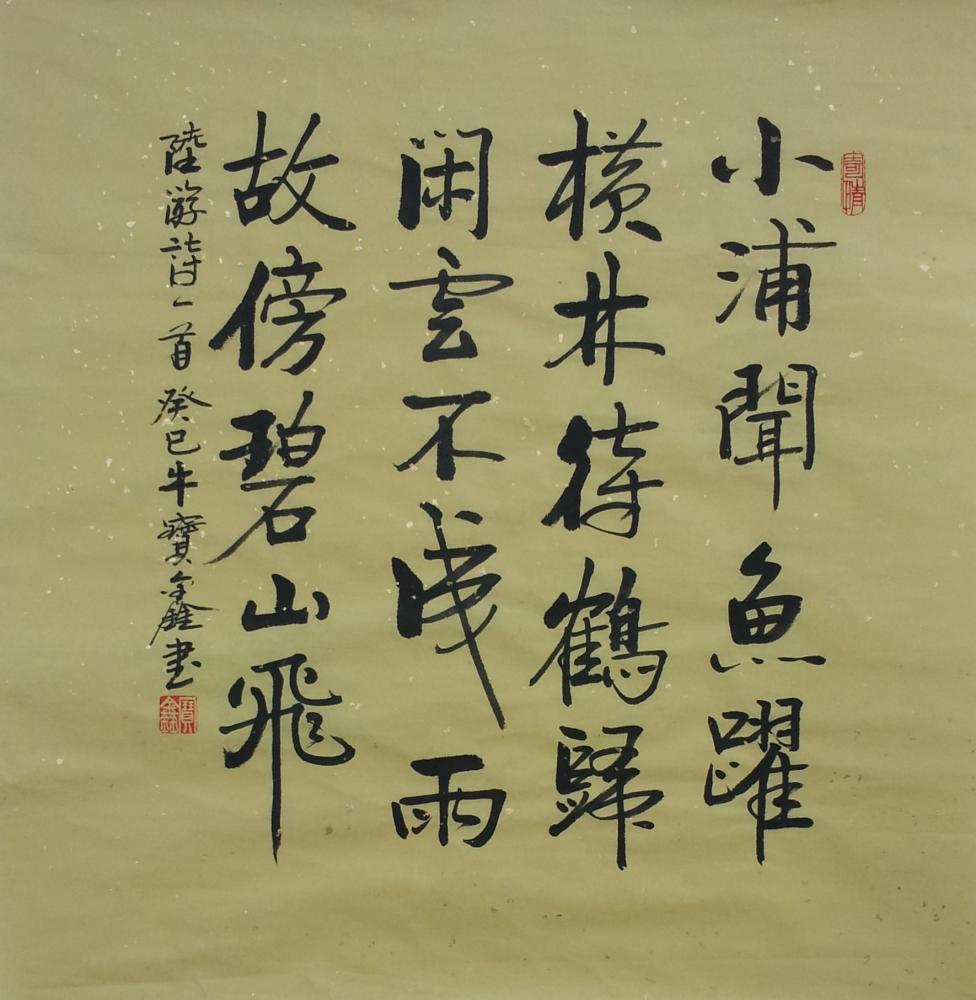 小浦聞魚躍
橫林待鶴歸
閑雲不成雨
故傍碧山飛
陸游詩一首 癸巳牛寶鑫書
寄情
寶鑫